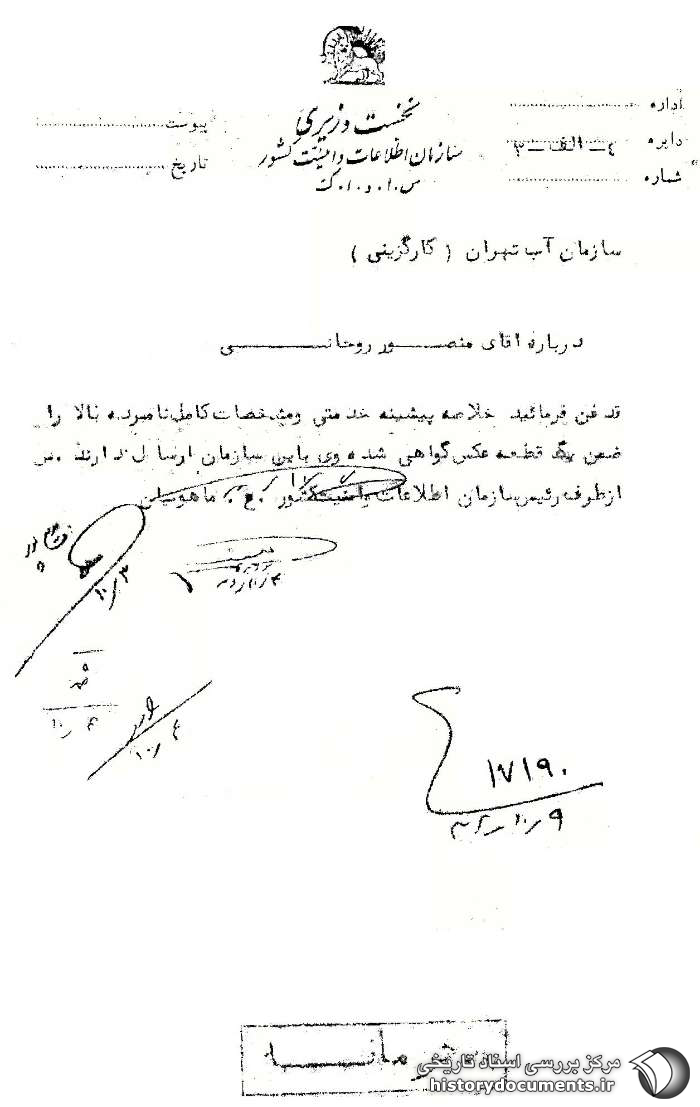 نخست وزیری
سازمان اطلاعات و امنیت کشور
س.ا.و.ا.ک
اداره
دایره ۴ـ الف ـ ۳
شماره
پیوست
تاریخ
سازمان آب تهران ( کارگزینی )
درباره اقای منصور روحانی
قدغن فرمائید خلاصه پیشینه خدمتی ومشخصات کامل نامبرده بالا را
ضمن یک قطعه عکس گواهی شده وی باین سازمان ارسال دارند .س
ازطرف رئیس سازمان اطلاعات وامنیت کشور .ع.
۱۰/۳
۱۰/۴
۱۰/۴
۱۷۱۹۰
۹ر۱۰ر۴۲
محرمانه
مرکز بررسی اسناد تاریخی
historydocuments.ir